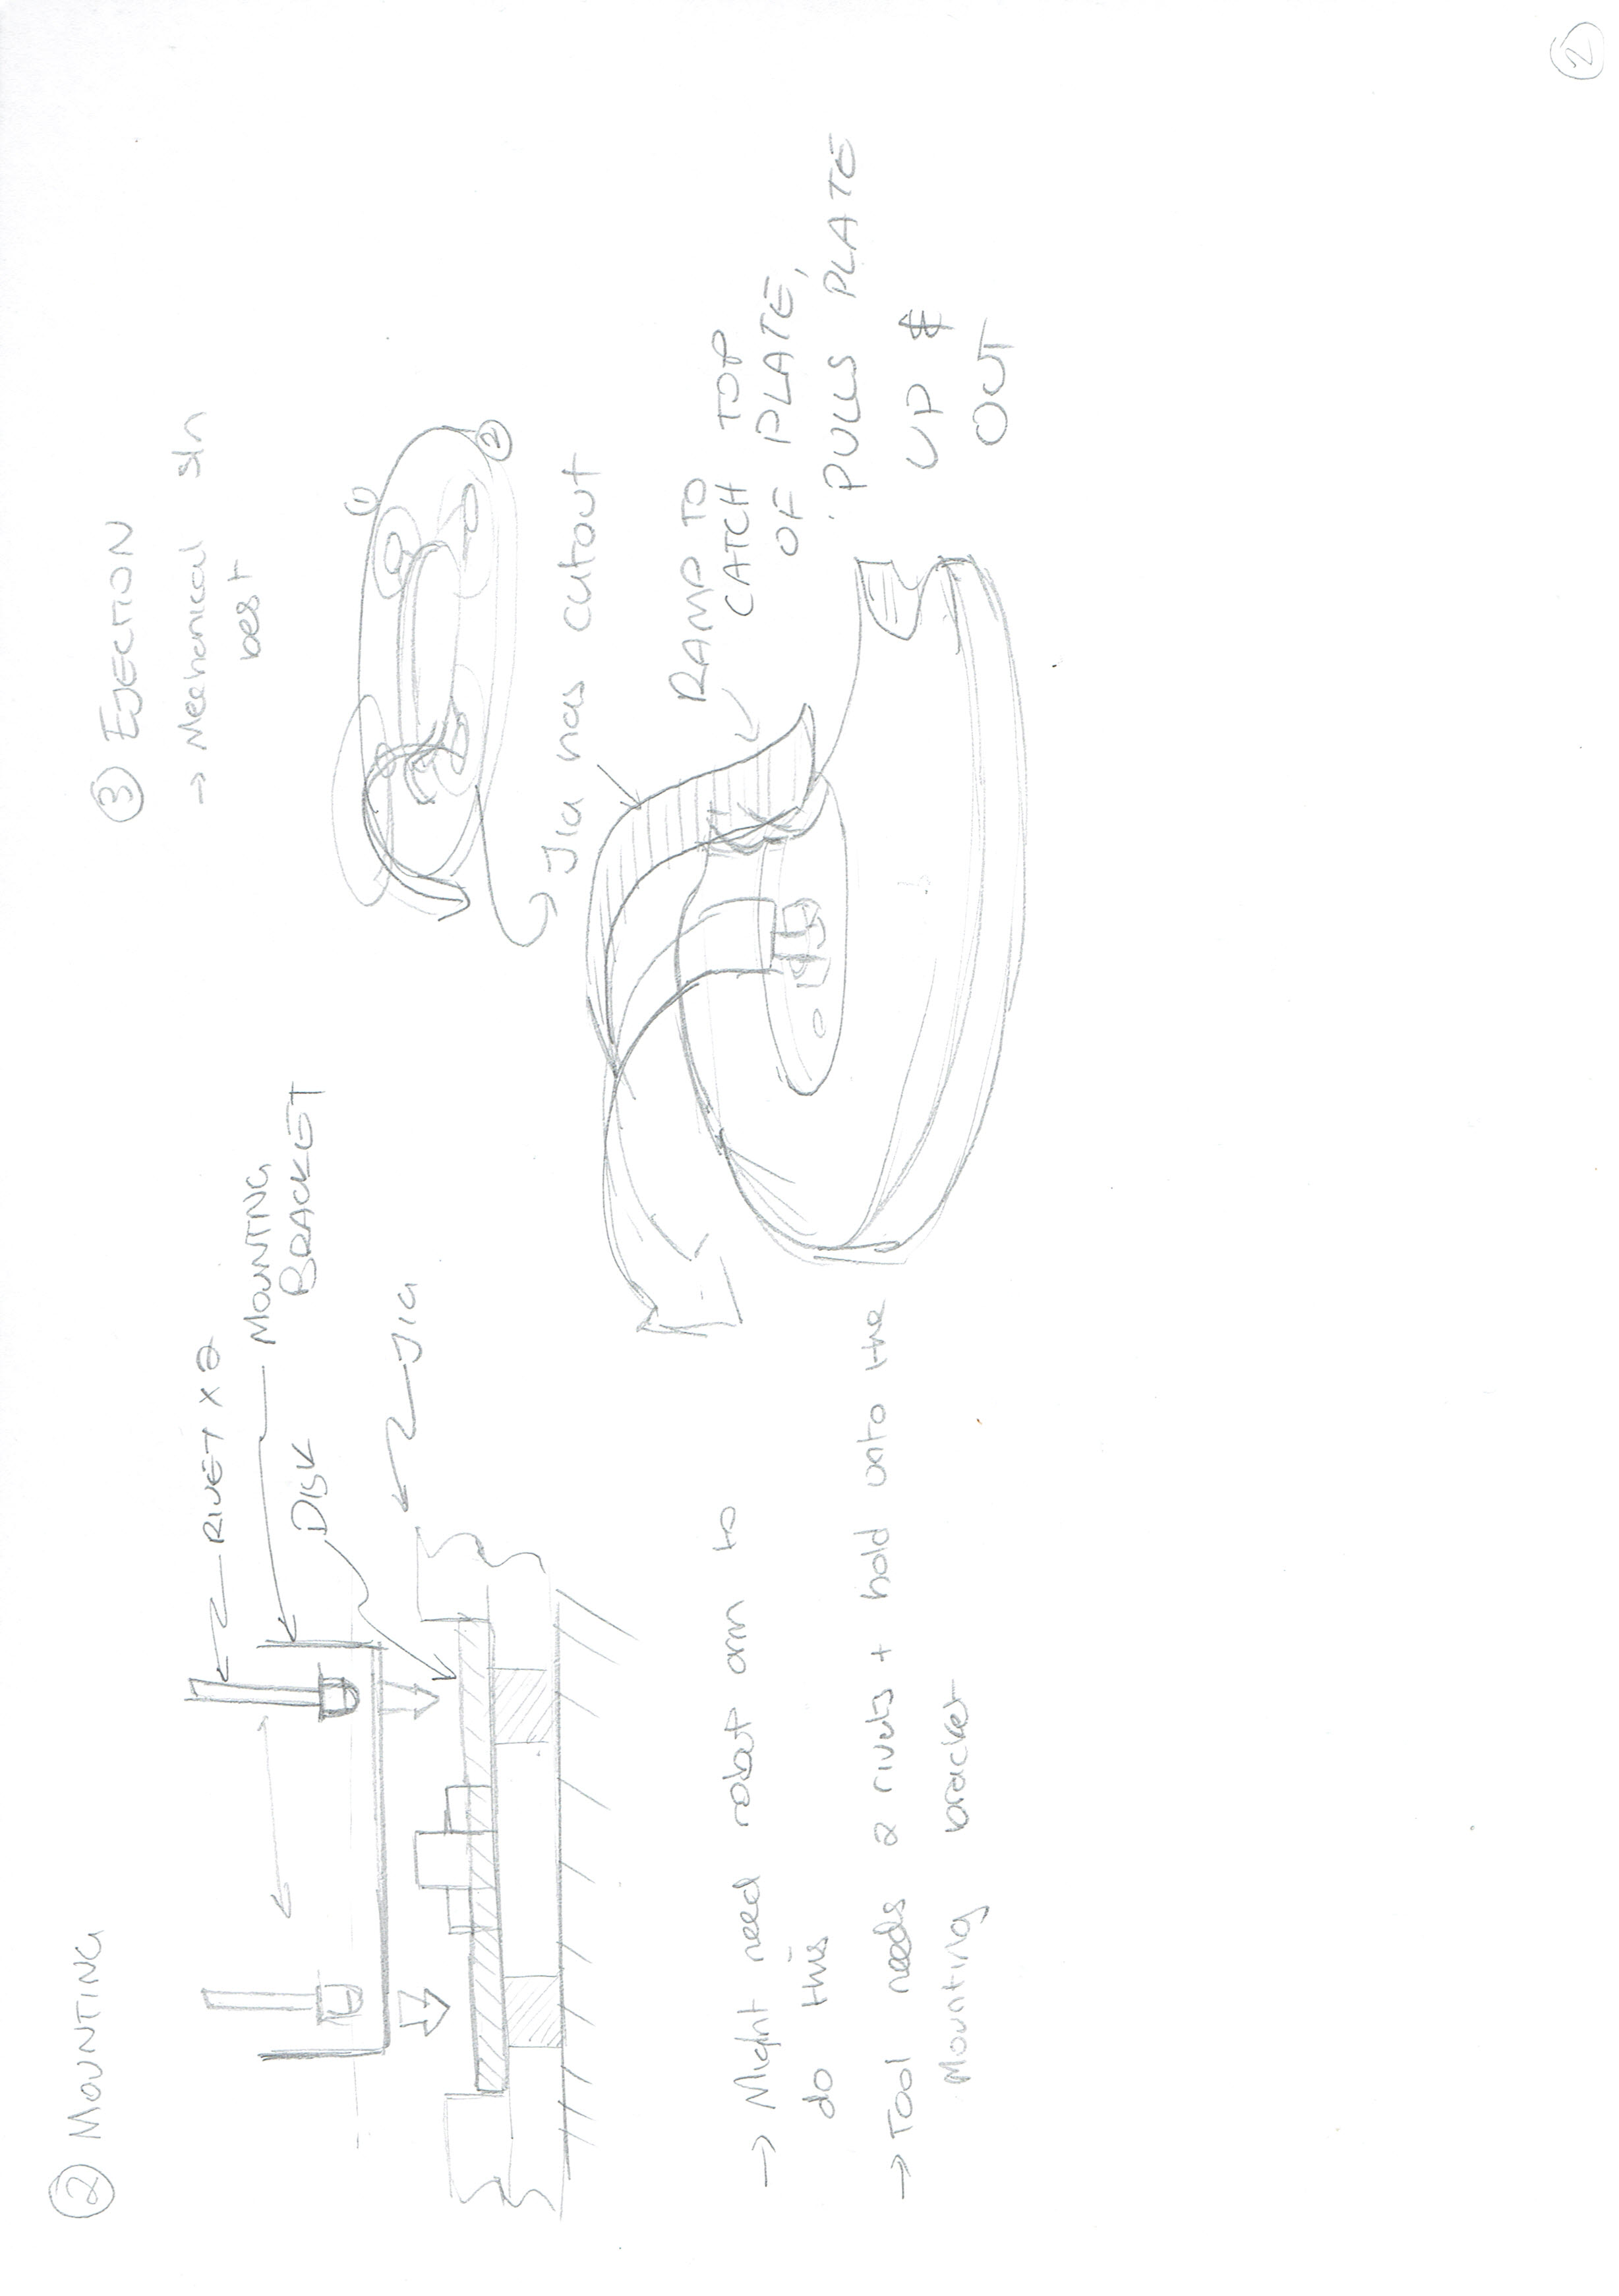 ② MOUNTING
RIVET X 2
MOUNTING
BRACKET
DISK
JIG
→ Might need robot arm to
do this
→ Tool needs 2 rivets + hold onto the
Mounting bracket
③ EJECTION
→ Mechanical sln
best
①
②
Jig has cutout
RAMP TO
CATCH TOP
OF PLATE,
PULLS PLATE
UP &
OUT
②